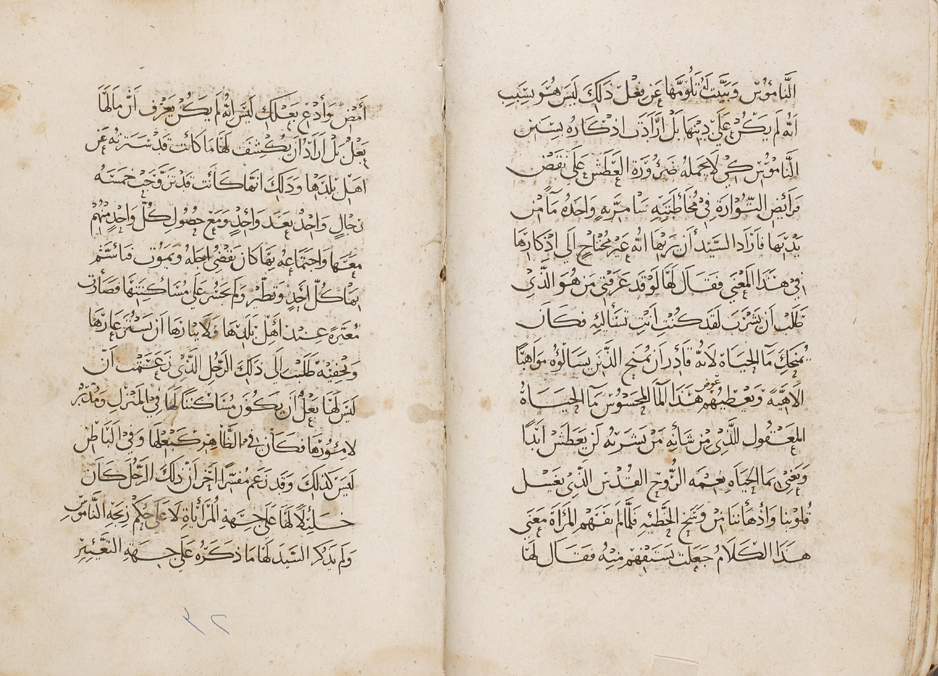 الناموس وبيّت له تلومها عن فعل ذلك ليس هو بسبب
انه لم يكن على دينها بل اراد ان اذكاره بسنن
الناموس كي لا يحمله ضرورة العطش على نقض
فرايض التوارة في مخاطبته سامريه واحده مامن
يدينها فاراد السيد ان يريها انه غير محتاج الى اذكارها
في هذا المعنى فقال لها لو قد عرفتي من هو الذي
طلب ان يشرب لقد كنت انت تسئاليه فكان
يمنحك ما الحياة لانه قادر ان يمنح الذين يسالوه مواهبًا
الاهيه ويعطيهم عوض هذا الما المحسوس ما الحياة
المعقول الذي من شانه من يشربه لن يعطش ابدًا
ويعني بما الحياه نعمه الروح القدس الذي يغسل
قلوبنا واذهاننا من وسخ الخطيه فلما لم تفهم المراة معنى
هذا الكلام جعلت تستفهم منه فقال لها
امضى وادعى بعلك ليس انه لم يكن يعرف ان ما لها
بعل بل اراد ان يكشف لها ما كانت قد سترته عن
اهل بلدها وذلك انها كانت قد تزوجت خمسه
رجال واحد بعد واحد ومع حصول كل واحد منهم
معها واجتماعه بها كان يقضي اجله ويموت فاستثم
بها كل احد وتطير ولم يجسر على مساكنتها فصارت
معيّره عند اهل بلدها ولايثارها ان يستتر عارها
وتخفيه طلبت الى ذلك الرجل الذي زعمت ان
ليس لها بعل ان يكون مساكنًا لها في المنزل ومدبر
لامورها فكان في الظاهر كبعلها وفي الباطن
ليس كذلك وقد زعم مفسرًا اخر ان ذلك الرجل كان
خليلًا لها على جهة المرااة لا على حكم زيجة الناموس
ولم يذكر السيد لها ما ذكره على جهة التعيير
٣٢